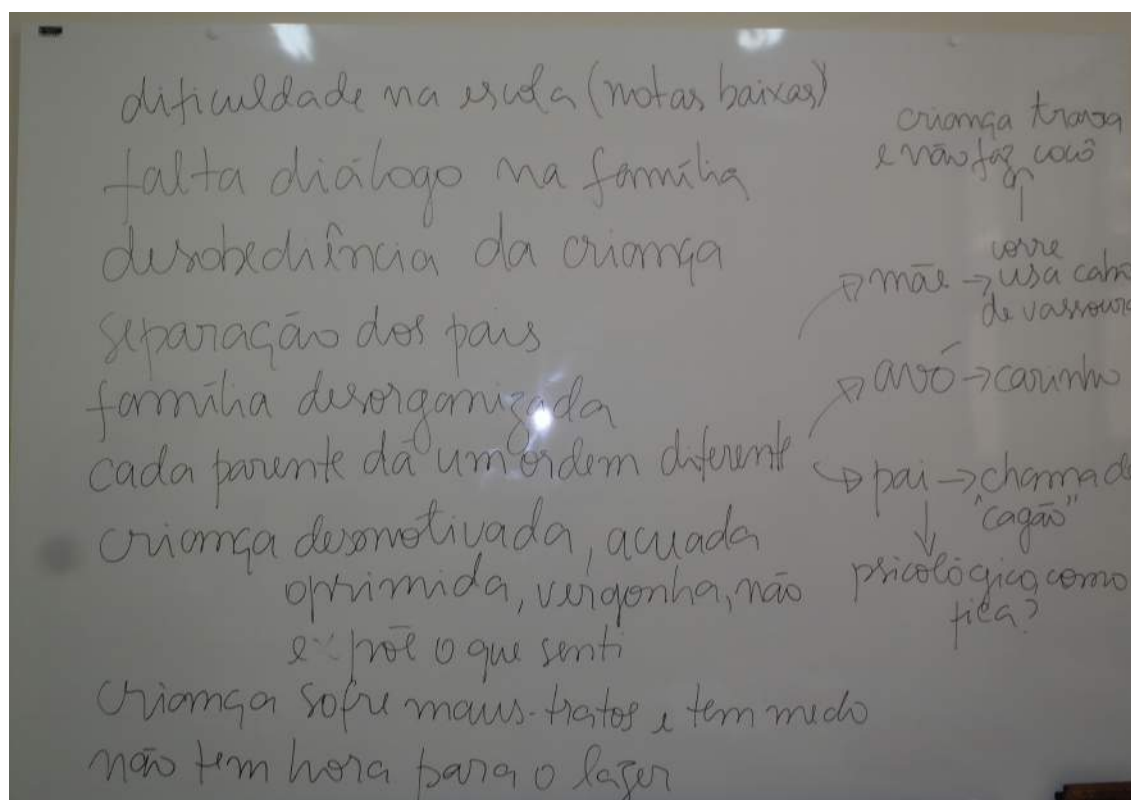 dificuldade na escola (notas baixas)
falta diálogo na família
desobediência da criança
separação dos pais
família desorganizada
cada parente dá um ordem diferente
criança desmotivada, acuada
oprimida, vergonha, não
expõe o que senti
criança sofre maus-tratos e tem medo
não tem hora para o lazer
criança trava
e não faz cocô
corre
mãe → usa cabo
de vassoura
avó → carinho
pai → chama de
"cagão"
psicológico, como
fica?